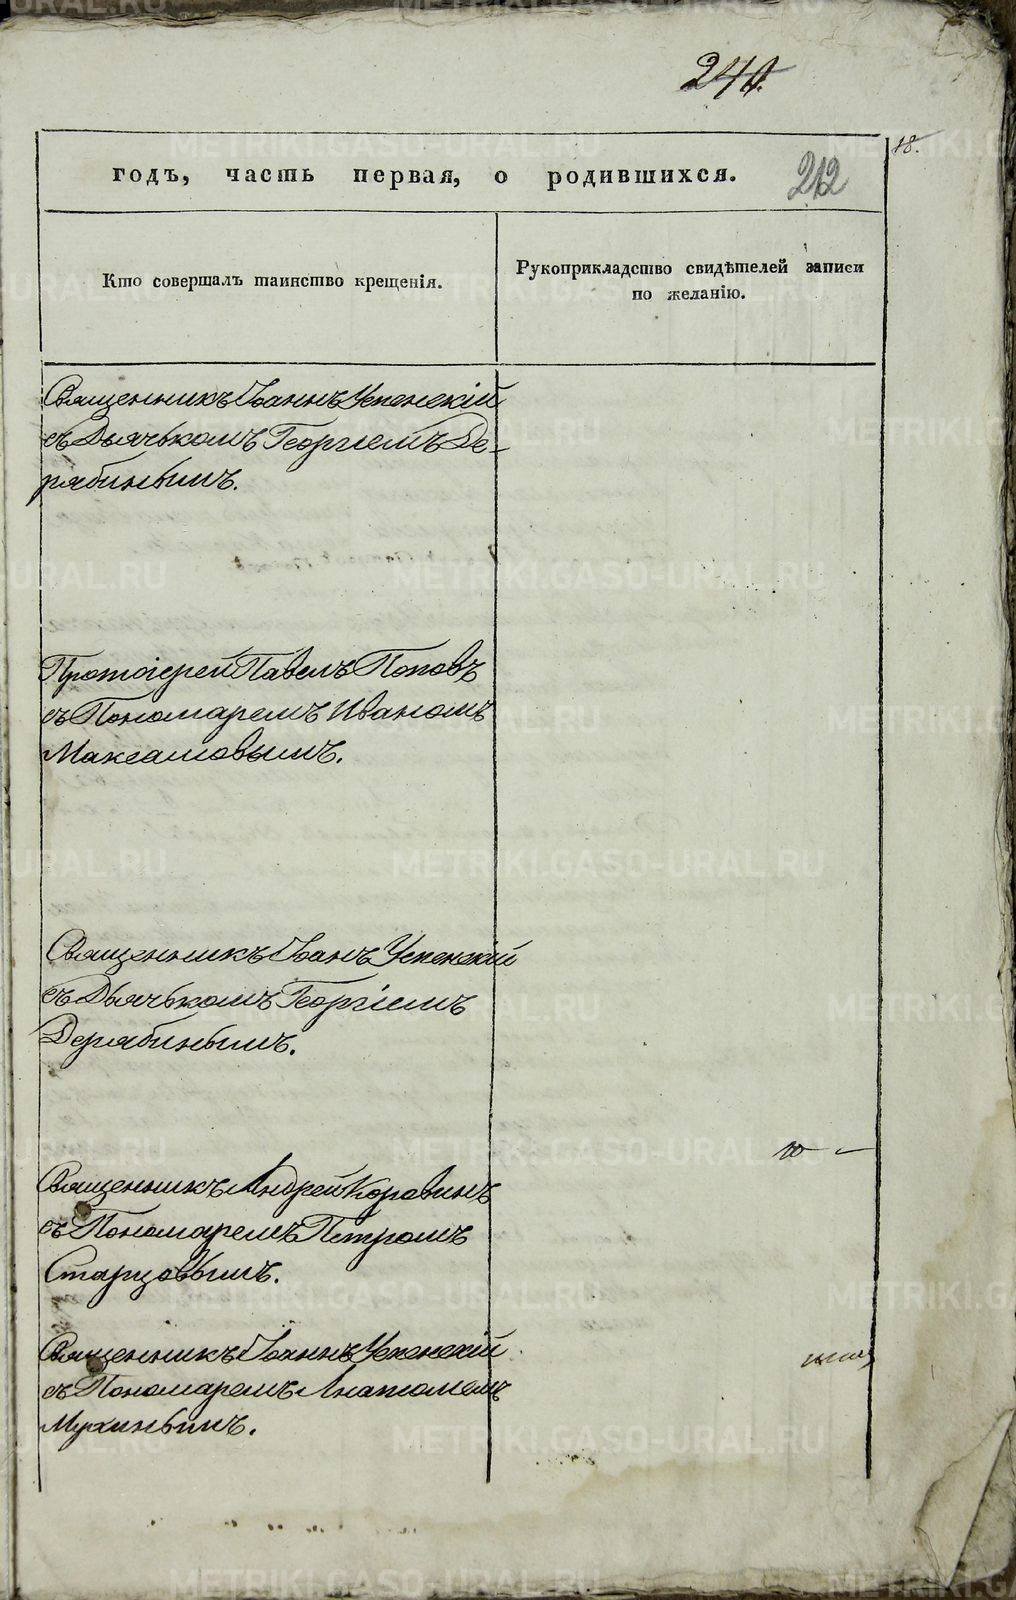 240.
18.
годъ, часть первая, о родившихся.
212
Кто совершалъ таинство крещенія.
Рукоприкладство свидѣтелей записи
по желанію.
Священникъ Іоаннъ Успенскій
съ Дьячькомъ Георгіемъ Де-
рябинымъ.
Протоіерей Павелъ Поповъ
съ Пономаремъ Иваномъ
Максамовымъ.
Священникъ Іоанъ Успенскій
съ Дьячькомъ Георгіемъ
Дерябинымъ.
Священникъ Андрей Коровинъ
съ Пономаремъ Петромъ
Старцовымъ.
Священникъ Іоаннъ Успенскій
съ Пономаремъ Анатоліемъ
Мухинымъ.
METRIKI.GASO-URAL.RU